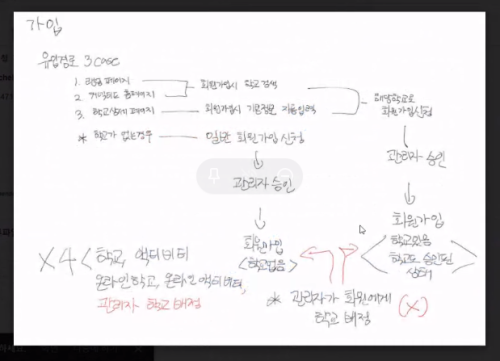 가입
유입경로 3 case
1. 랜딩 페이지
2. 홈페이지
회원가입시 학교 검색
3. 학교상세 페이지 회원가입시 기본정보 자동입력
해당학교로
회원가입신청
* 학교가 없는경우 일반 회원가입 신청
↓
관리자 승인
↓
관리자 승인
↓
회원가입
<학교없음>
↓
회원가입
학교있음
학교도 승인된
상태
X4 < 학교, 액티비티
온라인학교, 온라인 액티비티,
관리자 학교 배정
* 관리자가 회원에게
학교 배정 (X)